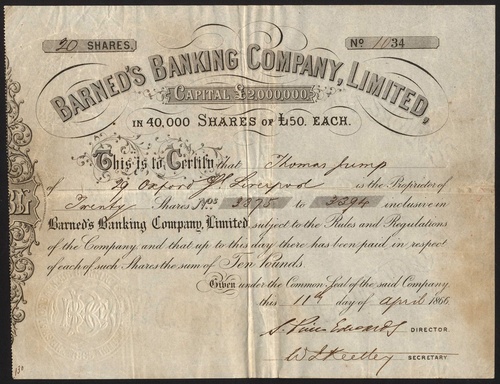 20 SHARES. No 1134
BARNED'S BANKING COMPANY, LIMITED,
CAPITAL £2,000,000.
IN 40,000 SHARES OF £50. EACH.
This is to Certify that Thomas Jump
of 29 Oxford St Liverpool is the Proprietor of
Twenty Shares Nos 3875 to 3894 inclusive in
Barned's Banking Company, Limited subject to the Rules and Regulations
of the Company and that up to this day there has been paid in respect
of each of such Shares the sum of Ten Pounds.
Given under the Common Seal of the said Company
this 11th day of April 1866
Edwards DIRECTOR
SECRETARY